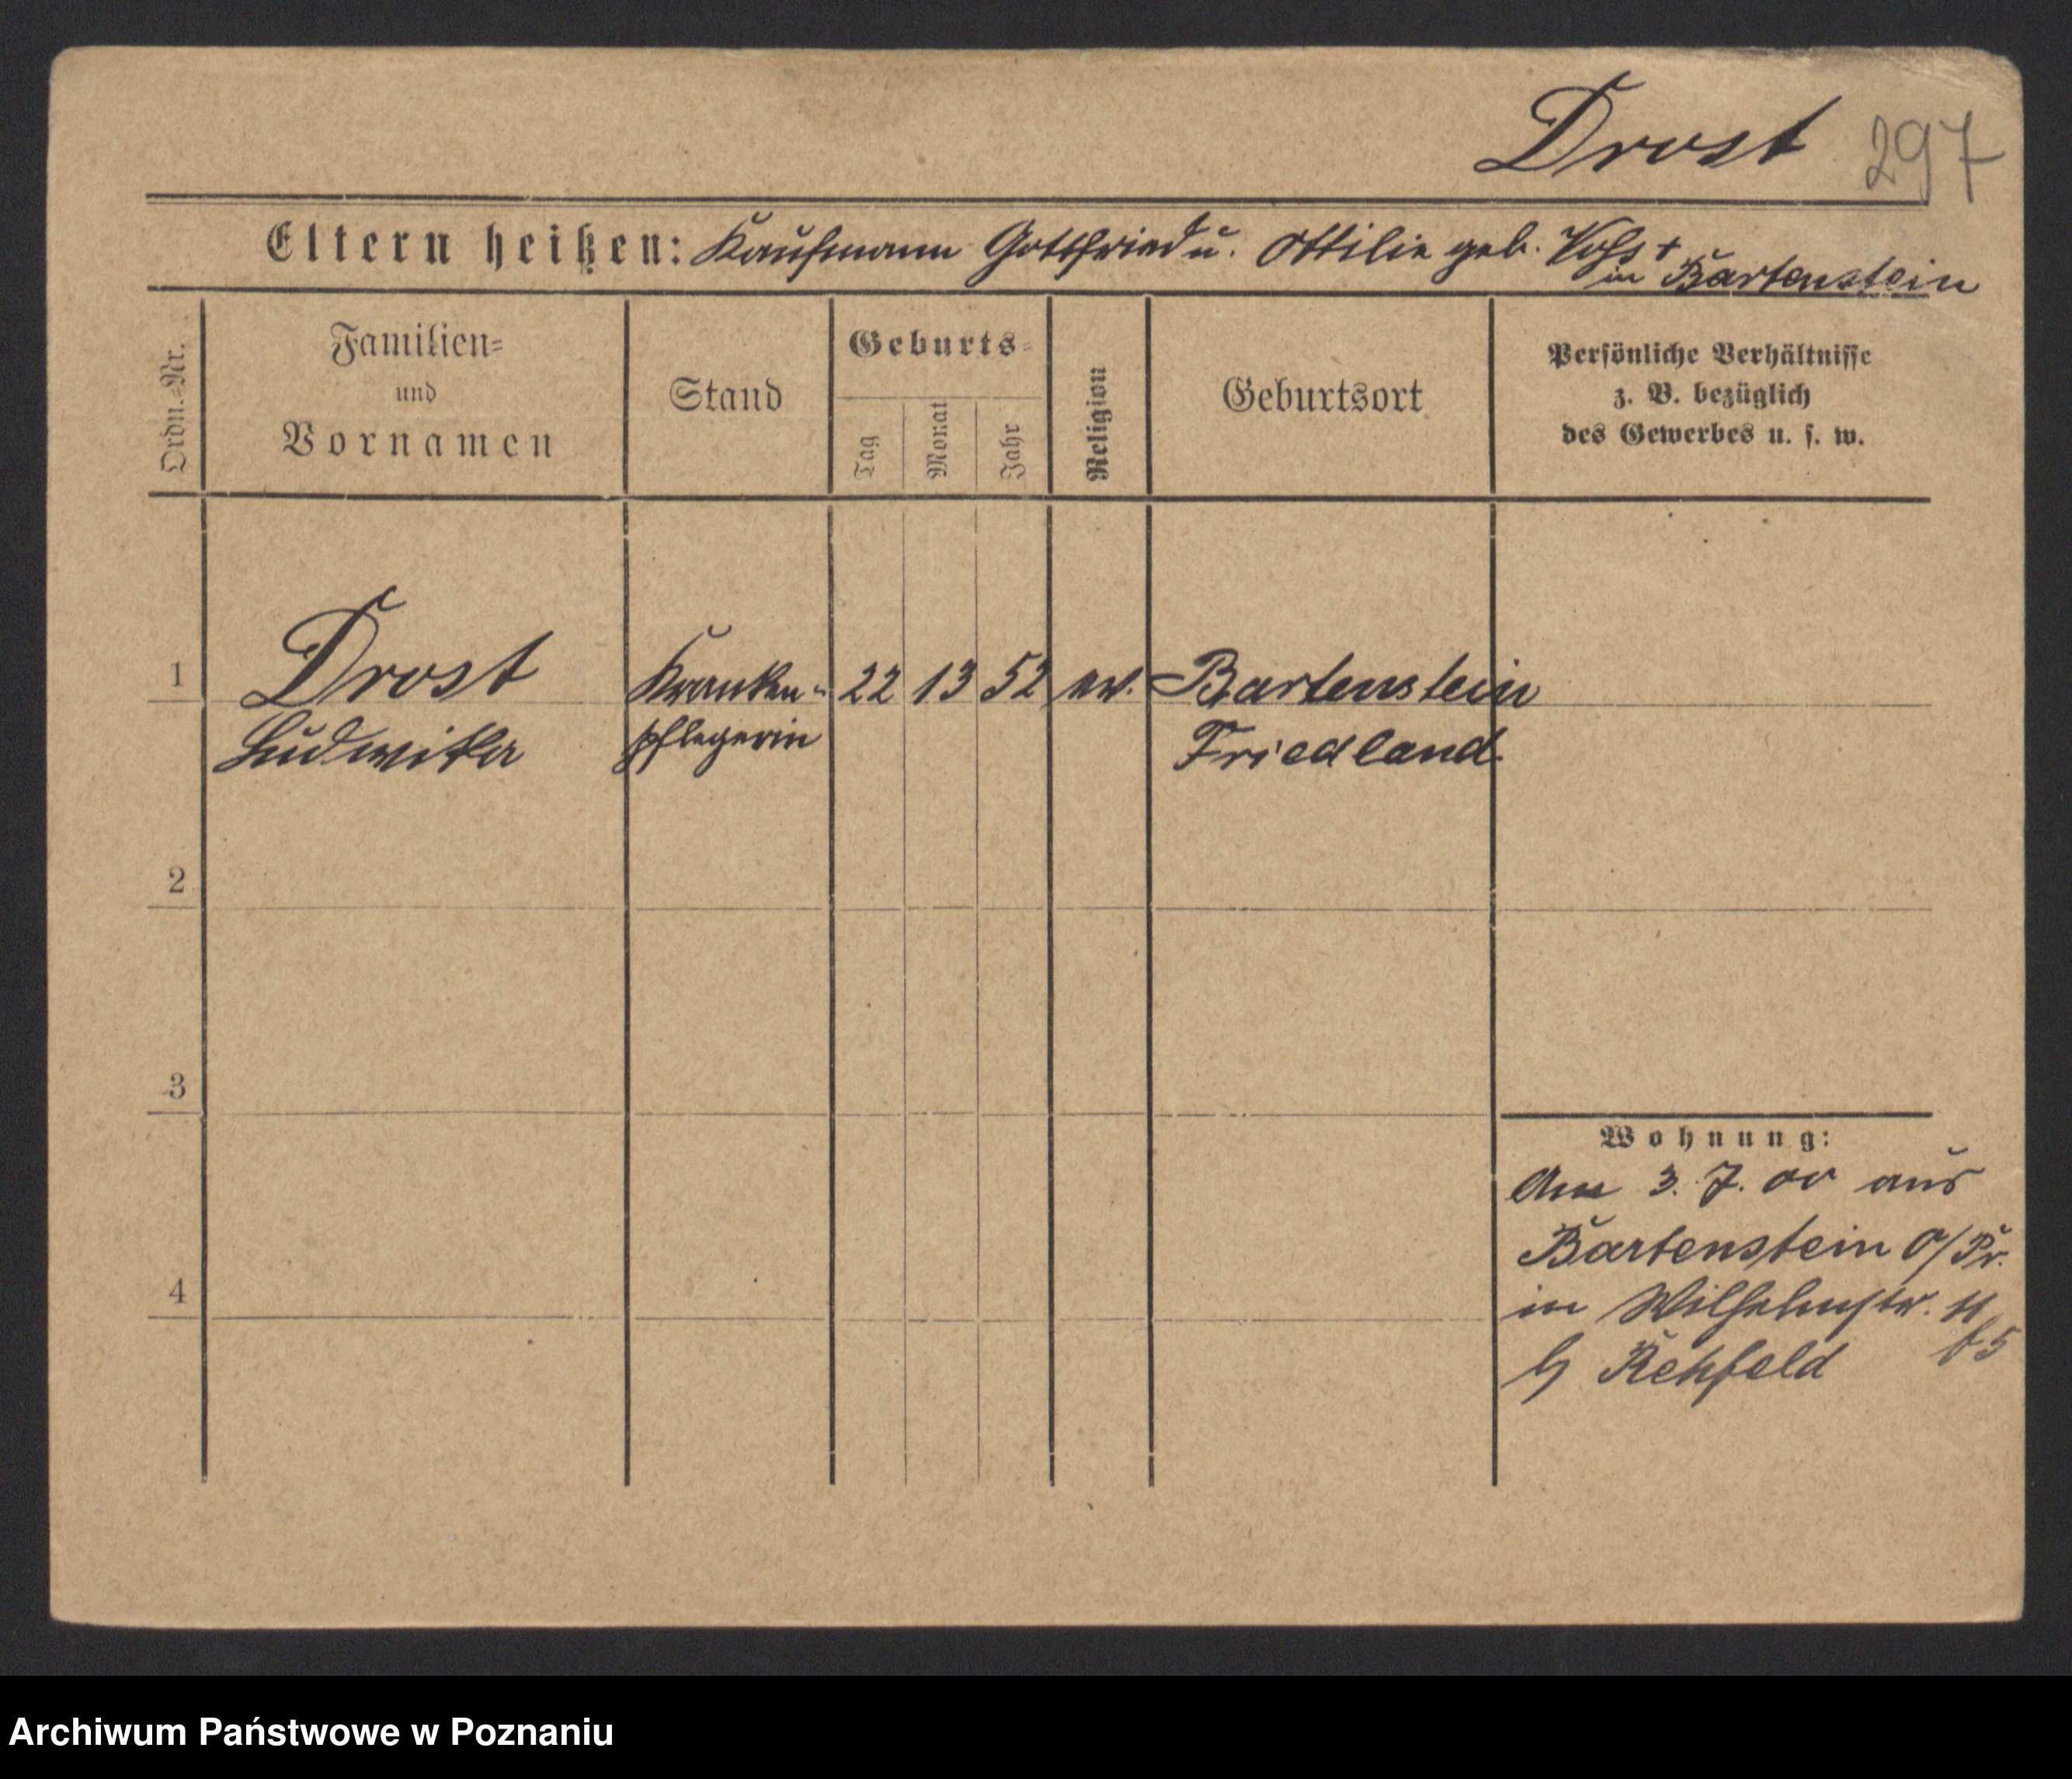 Drost 297
Eltern heißen: Kaufmann Gottfried u. Ottilie geb. Voss +
in Bartenstein
Ordn.-Nr.
Familien-
und
Vornamen
Stand
Geburts-
Tag
Monat
Jahr
Religion
Geburtsort
Persönliche Verhältnisse
z. B. bezüglich
des Gewerbes u. s. w.
1 Drost Kranken- 22 13 52 ev. Bartenstein
Ludwika pflegerin Friedland.
2
3
Wohnung:
Am 3. 7. 00 aus
Bartenstein O/Pr.
4
in Wilhelmstr. 11
b/ Rehfeld
Archiwum Państwowe w Poznaniu